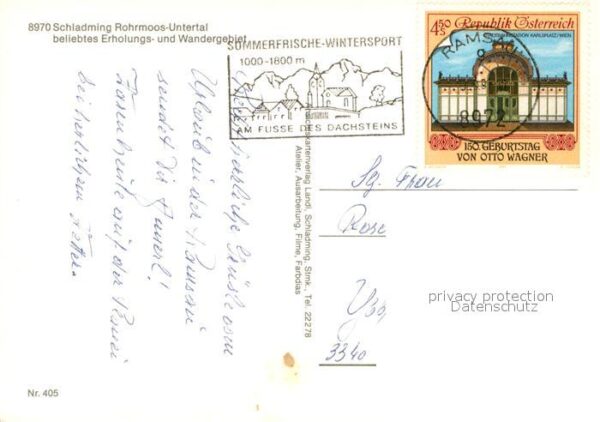 8970 Schladming Rohrmoos-Untertal
beliebtes Erholungs- und Wandergebiet
SOMMERFRISCHE-WINTERSPORT
1000-1800 m
AM FUSSE DES DACHSTEINS
RAMSAU
8972
4.50 Republik Österreich
STADTBAHNSTATION KARLSPLATZ/WIEN
150. GEBURTSTAG
VON OTTO WAGNER
Herzliche Grüße vom
Urlaub in der Ramsau
sendet Dir
heute auf der
herzlichen
Ansichtskartenverlag Landl, Schladming, Stmk., Tel. 22278
Atelier, Ausarbeitung, Filme, Farbdias
Sg. Frau
Rose
Ybs,
3340
privacy protection
Datenschutz
Nr. 405